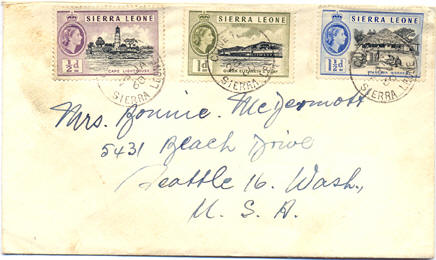 SIERRA LEONE SIERRA LEONE SIERRA LEONE
½d 1d 1½d
CAPE LIGHTHOUSE QUEEN ELIZABETH II QUAY
SIERRA SIERRA SIERRA
Mrs. Bonnie McDermott
5431 Beach Drive
Seattle 16. Wash,
U. S. A.